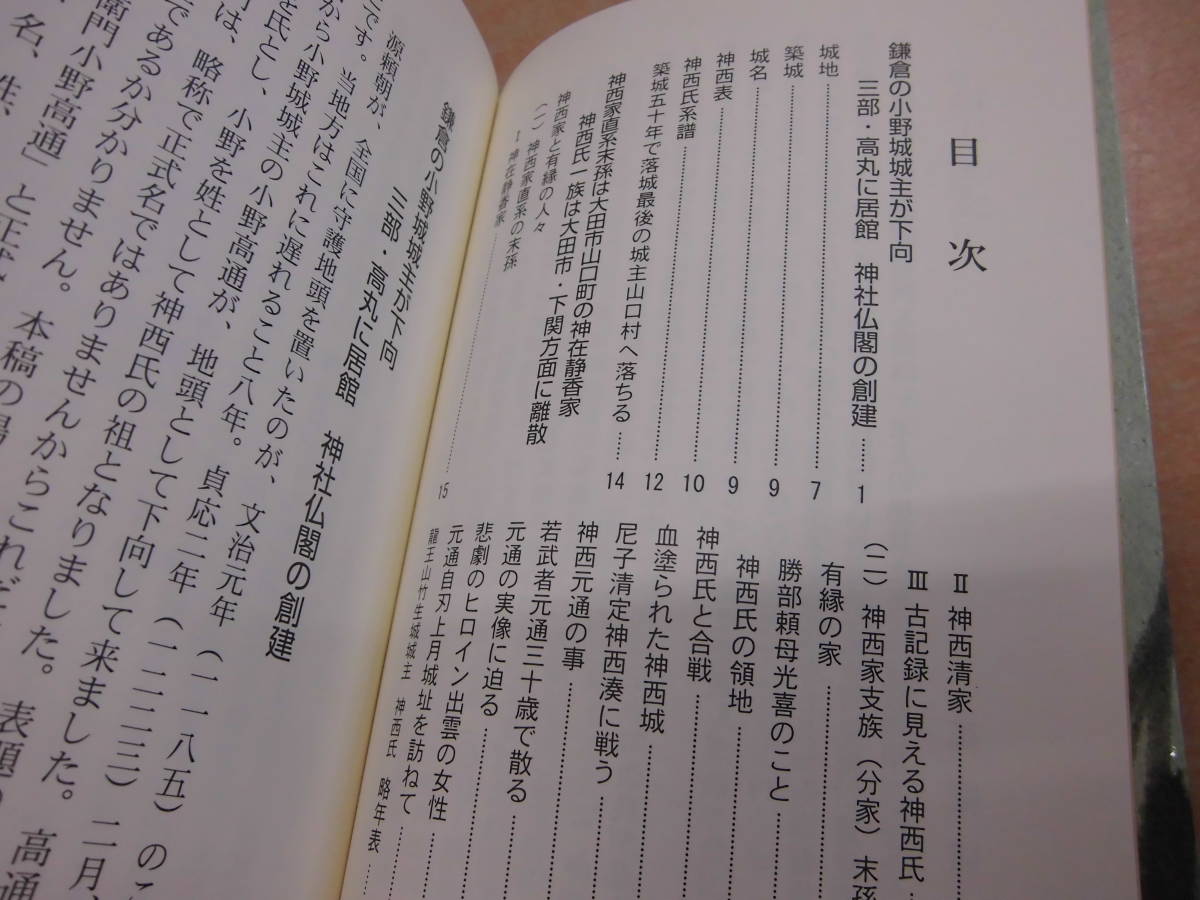 目次
鎌倉の小野城城主が下向
三部・高丸に居館 神社仏閣の創建 …… 1
城地 …… 7
築城 …… 9
城名 …… 9
神西表 …… 10
神西氏系譜 …… 12
築城五十年で落城最後の城主山口村へ落ちる …… 14
神西家直系末孫は大田市山口町の神在静香家
神西氏一族は大田市・下関方面に離散
神西家と有縁の人々
(一) 神西家直系の末孫
Ⅰ 神在静香家 …… 15
Ⅱ 神西清家
Ⅲ 古記録に見える神西氏
(二) 神西家支族(分家)末孫
有縁の家
勝部頼母光喜のこと
神西氏の領地
神西氏と合戦
血塗られた神西城
尼子清定神西湊に戦う
神西元通の事
若武者元通三十歳で散る
元通の実像に迫る
悲劇のヒロイン出雲の女性
元通自刃上月城址を訪ねて
龍王山竹生城城主 神西氏 略年表
鎌倉の小野城城主が下向
三部・高丸に居館 神社仏閣の創建
源頼朝が、全国に守護地頭を置いたのが、文治元年(一一八五)の
です。当地方はこれに遅れること八年。貞応二年(一二二三)二月、
から小野城城主の小野高通が、地頭として下向して来ました。高通
を氏とし、小野を姓として神西氏の祖となりました。表題の
は、略称で正式名ではありませんからこれだ
であるか分かりません。本稿の場
衛門小野高通」と正式
名、姓、